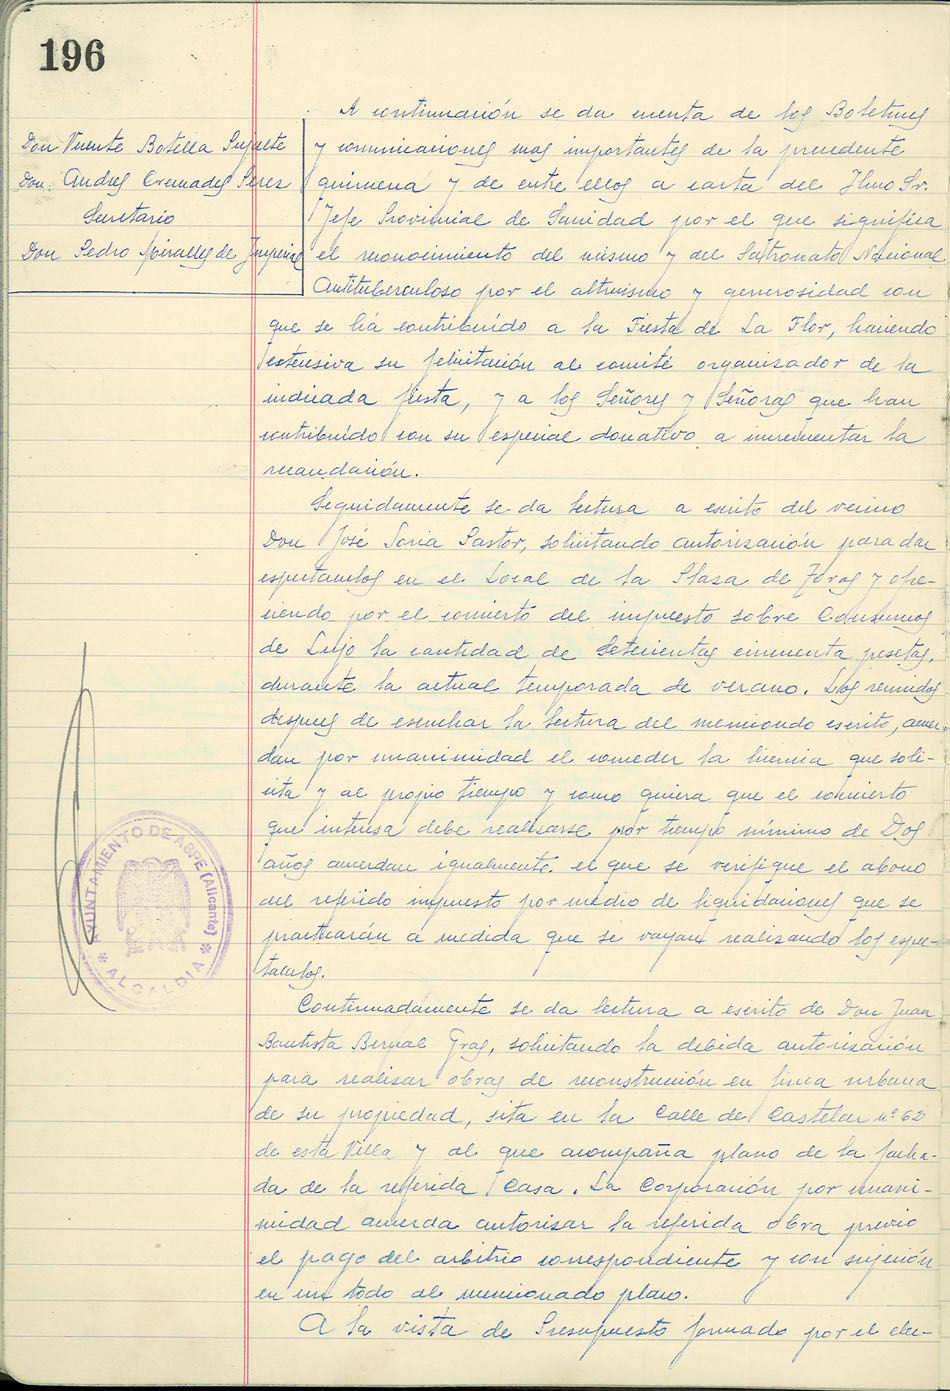 196
Don Vicente Botella Sujuete
Don Andres Cremades Perez
Secretario
Don Pedro Miralles de Imperial
A continuación se da cuenta de los Boletines
y comunicaciones mas importantes de la precedente
quincena y de entre ellos a carta del Ilmo Sr.
Jefe Provincial de Sanidad por el que significa
el reconocimiento del mismo y del Patronato Nacional
Antituberculoso por el altruismo y generosidad con
que se há contribuído a la Fiesta de La Flor, haciendo
extensiva su felicitación al comité organizador de la
indicada fiesta, y a los Señores y Señoras que han
contribuído con su especial donativo a incrementar la
recaudación.
Seguidamente se da lectura a escrito del vecino
Don José Soria Pastor, solicitando autorización para dar
espectaculos en el Local de la Plaza de Toros y ofre-
ciendo por el concierto del impuesto sobre Consumos
de Lujo la cantidad de setecientas cincuenta pesetas,
durante la actual temporada de verano. Los reunidos
despues de escuchar la lectura del menciondo escrito, acuer-
dan por unanimidad el conceder la licencia que soli-
cita y al propio tiempo y como quiera que el concierto
que intersa debe realizarse por tiempo mínimo de Dos
años acuerdan igualmente el que se verifique el abono
del referido impuesto por medio de liquidaciones que se
practicarán a medida que se vayan realizando los espec-
taculos.
Continuadamente se da lectura a escrito de Don Juan
Bautista Bernal Gras, solicitando la debida autorización
para realizar obras de reconstrucción en finca urbana
de su propiedad, sita en la Calle de Castelar nº 62
de esta Villa y al que acompaña plano de la facha-
da de la referida Casa. La Corporación por unani-
midad acuerda autorizar la referida obra previo
el pago del arbitrio correspondiente y con sujeción
en un todo al mencionado plano.
A la vista de Presupuesto formado por el elec-
AYUNTAMIENTO DE ASPE (Alicante)
* ALCALDIA *